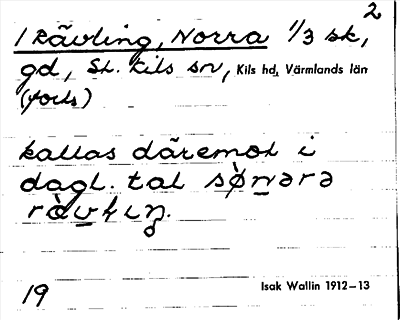 2
1 Rävling, Norra 1/3 sk,
gd, St. Kils sn, Kils hd, Värmlands län
(forts)
kallas däremot i
dagl. tal sø̀nərə
ràvlıŋ.
19 Isak Wallin 1912–13